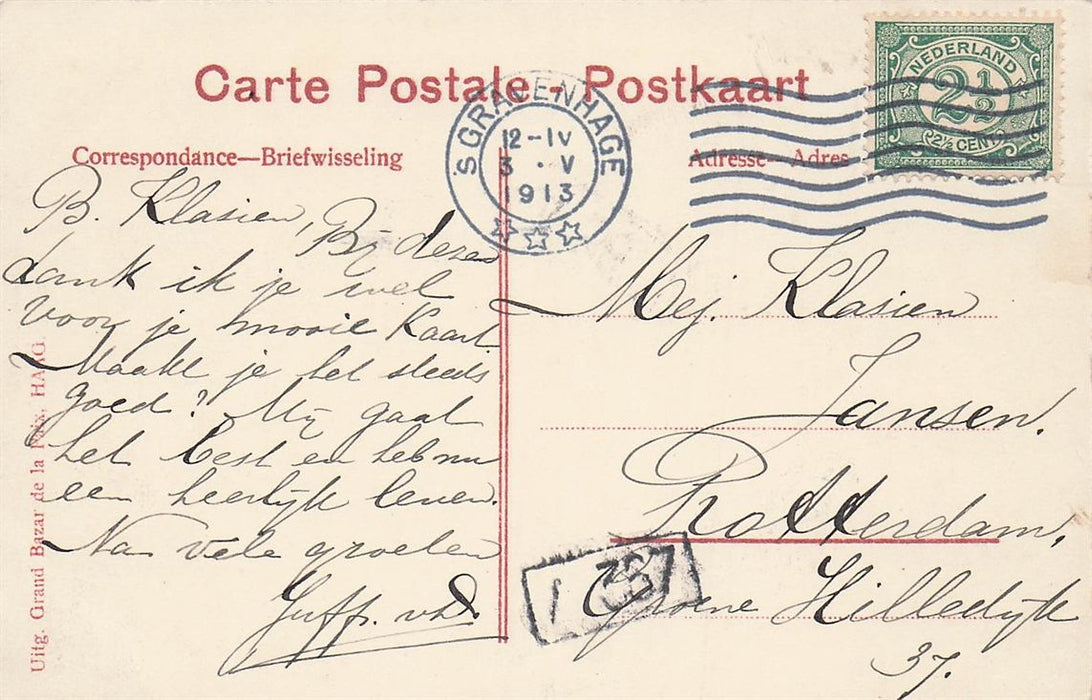 Carte Postale - Postkaart
Correspondance—Briefwisseling
Adresse—Adres
'S GRAVENHAGE
12-IV
3 · V
1913
NEDERLAND
2½
2½ CENT
B. Klasien, Bij dezen
dank ik je wel
voor je mooie kaart
Maakt je het steeds
goed? Mij gaat
het best en heb nu
een heerlijk leven.
Na vele groeten
Juffr. vd
Mej. Klasien
Jansen.
Rotterdam,
Groene Hilledijk
37.
Uitg. Grand Bazar de la Paix, HAAG.